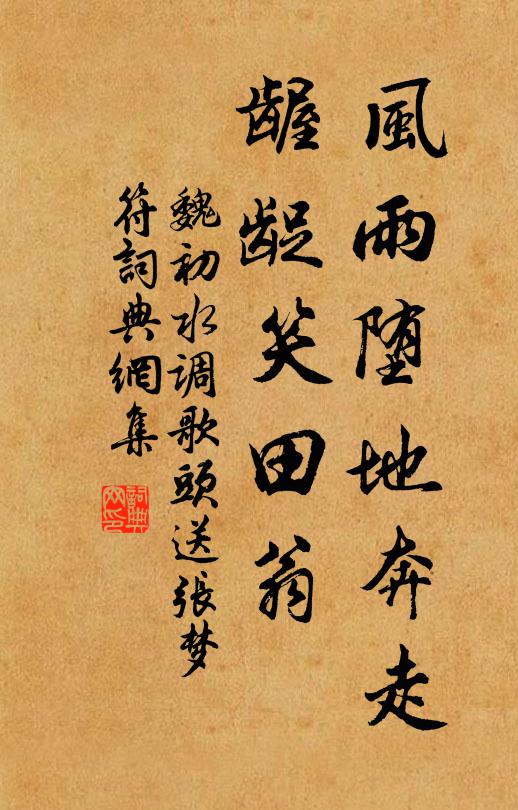 風雨墮地奔走
齷齪笑田翁
魏初水调歌頭送張梦
符詞典網集
詞典网印